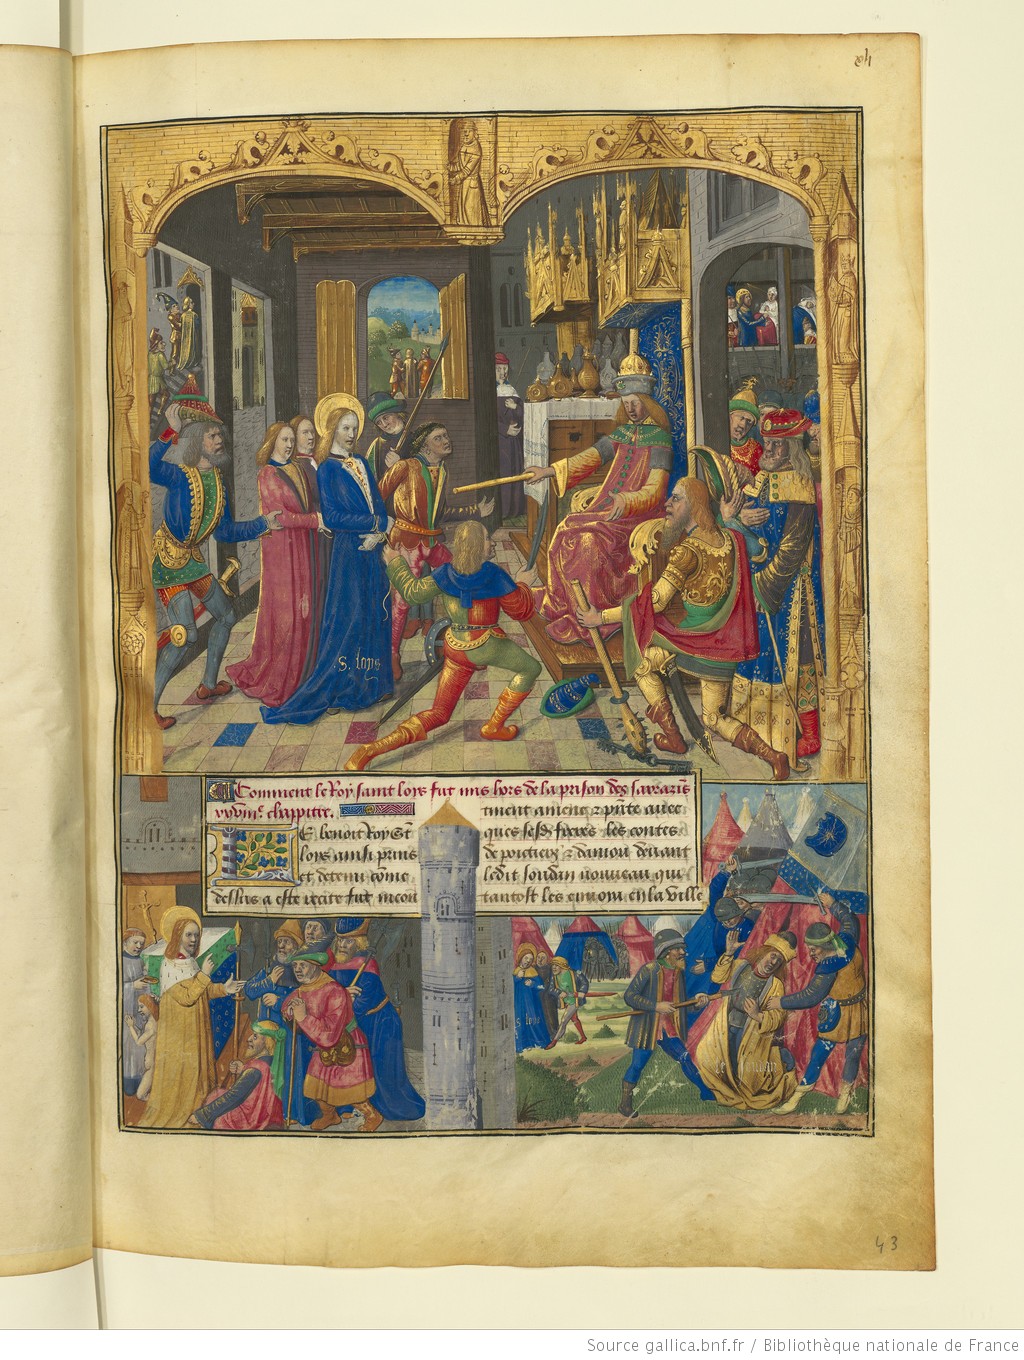 S. loys
Comment le Roy saint loys fut mis hors de la prison des sarrazins
chappitre.
Le benoit Roy st
loys ainsi prins
et detenu come
dessus a este recite fut incon
tinent amene & pnte avec
ques sesd freres les contes
de poictiers & daniou devant
ledit soudan nouveau qui
tantost les envoya en la ville
S. loys
le soudan
43
Source gallica.bnf.fr / Bibliothèque nationale de France